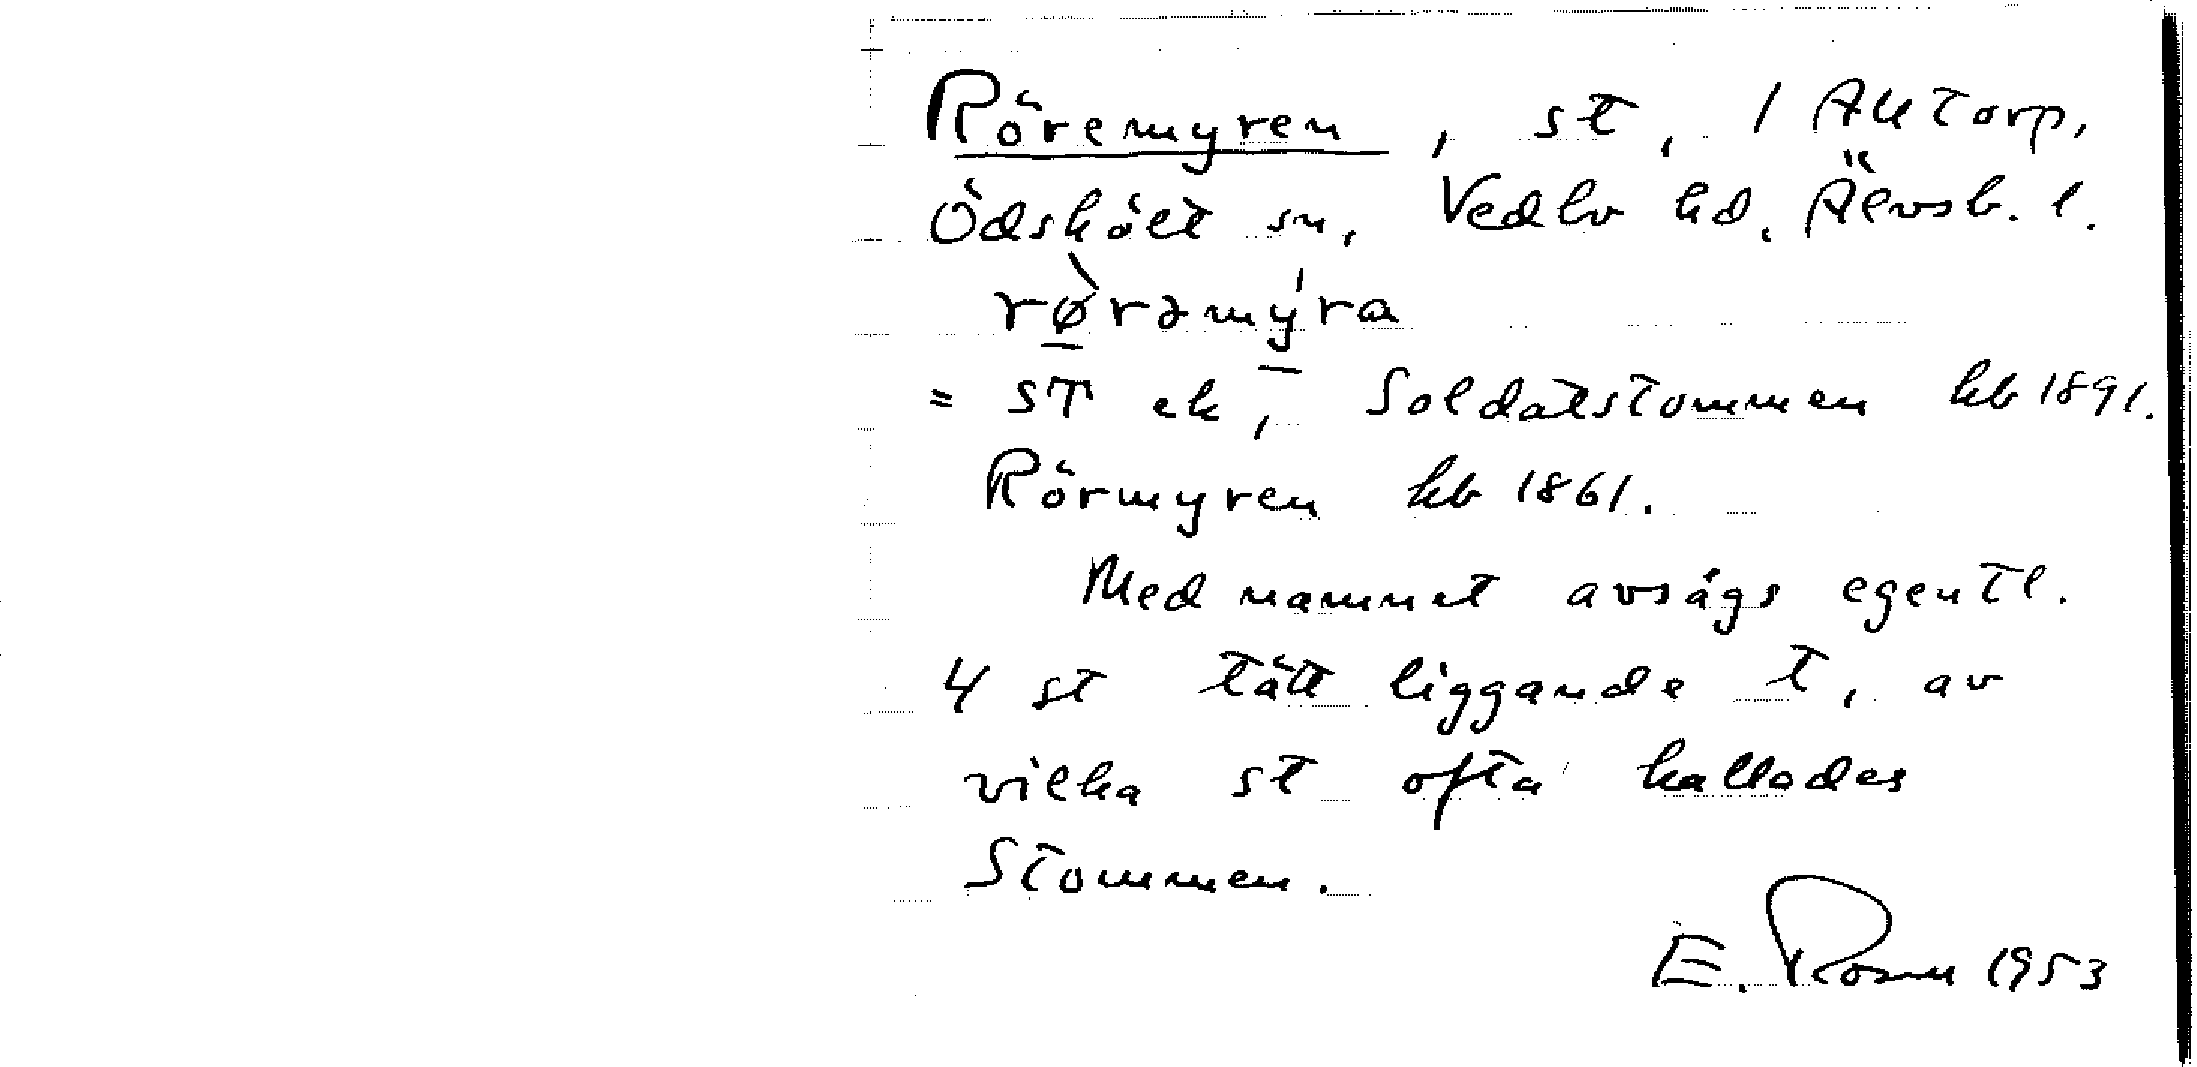 Röremyren, st, / Alltorp,
Ödskölt sn, Vedbo hd. Älvsb. l.
rø̀rəmýra
= ST ek, Soldatstommen kb 1891.
Rörmyren kb 1861.
Med namnet avsågs egentl.
4 st tätt liggande t, av
vilka st ofta kallades
Stommen.
E. Rosen 1953